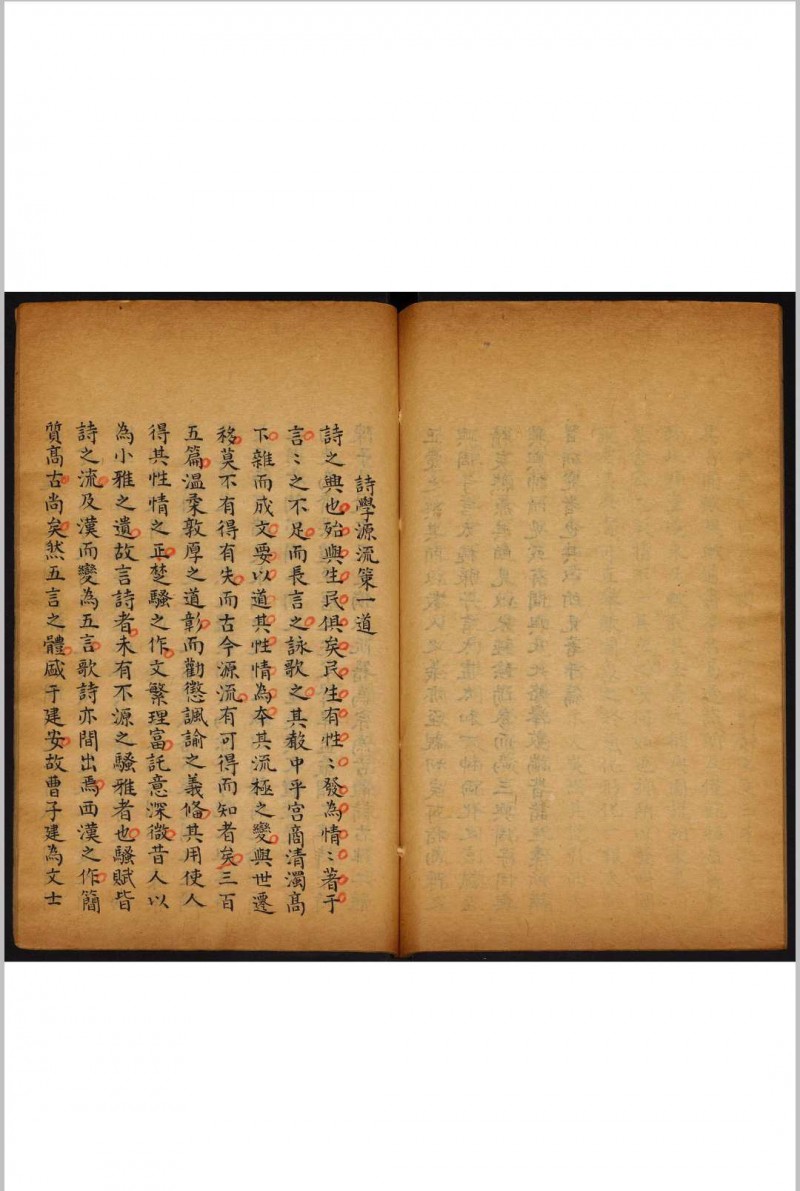 詩學源流策一道
詩之興也殆與生民俱矣民生有性〻發為情〻著于
言〻之不足而長言之詠歌之其聲中乎宮商清濁高
下雜而成文要以道其性情為本其流極之變與世遷
移莫不有得有失而古今源流有可得而知者矣三百
五篇溫柔敦厚之道彰而勸懲諷諭之義脩其用使人
得其性情之正楚騷之作文繁理富託意深微昔人以
為小雅之遺故言詩者未有不源之騷雅者也騷賦皆
詩之流及漢而變為五言歌詩亦間出焉西漢之作簡
質高古尚矣然五言之體盛于建安故曹子建為文士